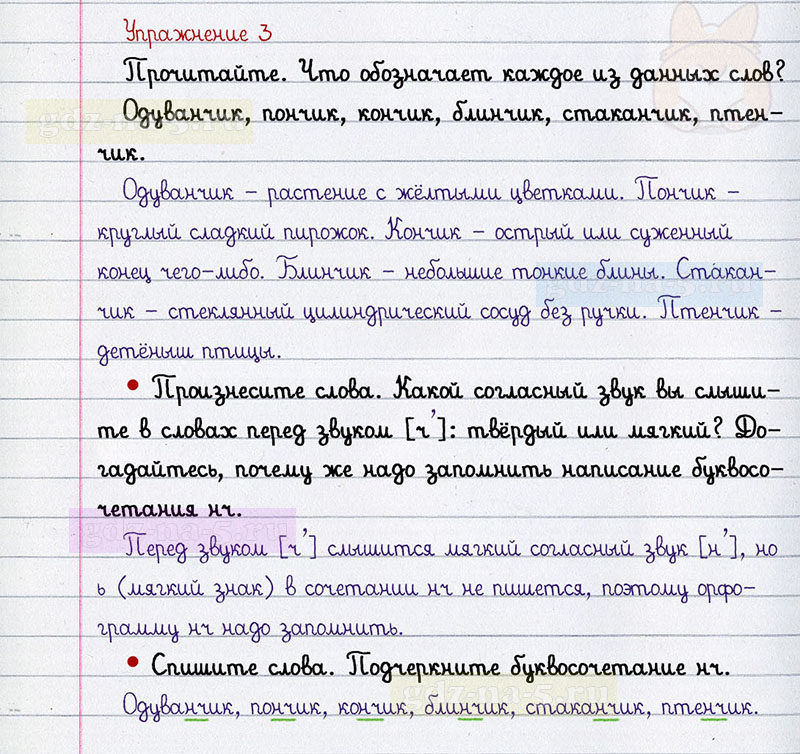 Упражнение 3
Прочитайте. Что обозначает каждое из данных слов?
Одуванчик, пончик, кончик, блинчик, стаканчик, птен-
чик.
Одуванчик – растение с жёлтыми цветками. Пончик –
круглый сладкий пирожок. Кончик – острый или суженный
конец чего-либо. Блинчик – небольшие тонкие блины. Стакан-
чик – стеклянный цилиндрический сосуд без ручки. Птенчик –
детёныш птицы.
• Произнесите слова. Какой согласный звук вы слыши-
те в словах перед звуком [ч']: твёрдый или мягкий? До-
гадайтесь, почему же надо запомнить написание буквосо-
четания нч.
Перед звуком [ч'] слышится мягкий согласный звук [н'], но
ь (мягкий знак) в сочетании нч не пишется, поэтому орфо-
грамму нч надо запомнить.
• Спишите слова. Подчеркните буквосочетание нч.
Одуванчик, пончик, кончик, блинчик, стаканчик, птенчик.
gdz-na-5.ru
gdz-na-5.ru
gdz-na-5.ru
gdz-na-5.ru